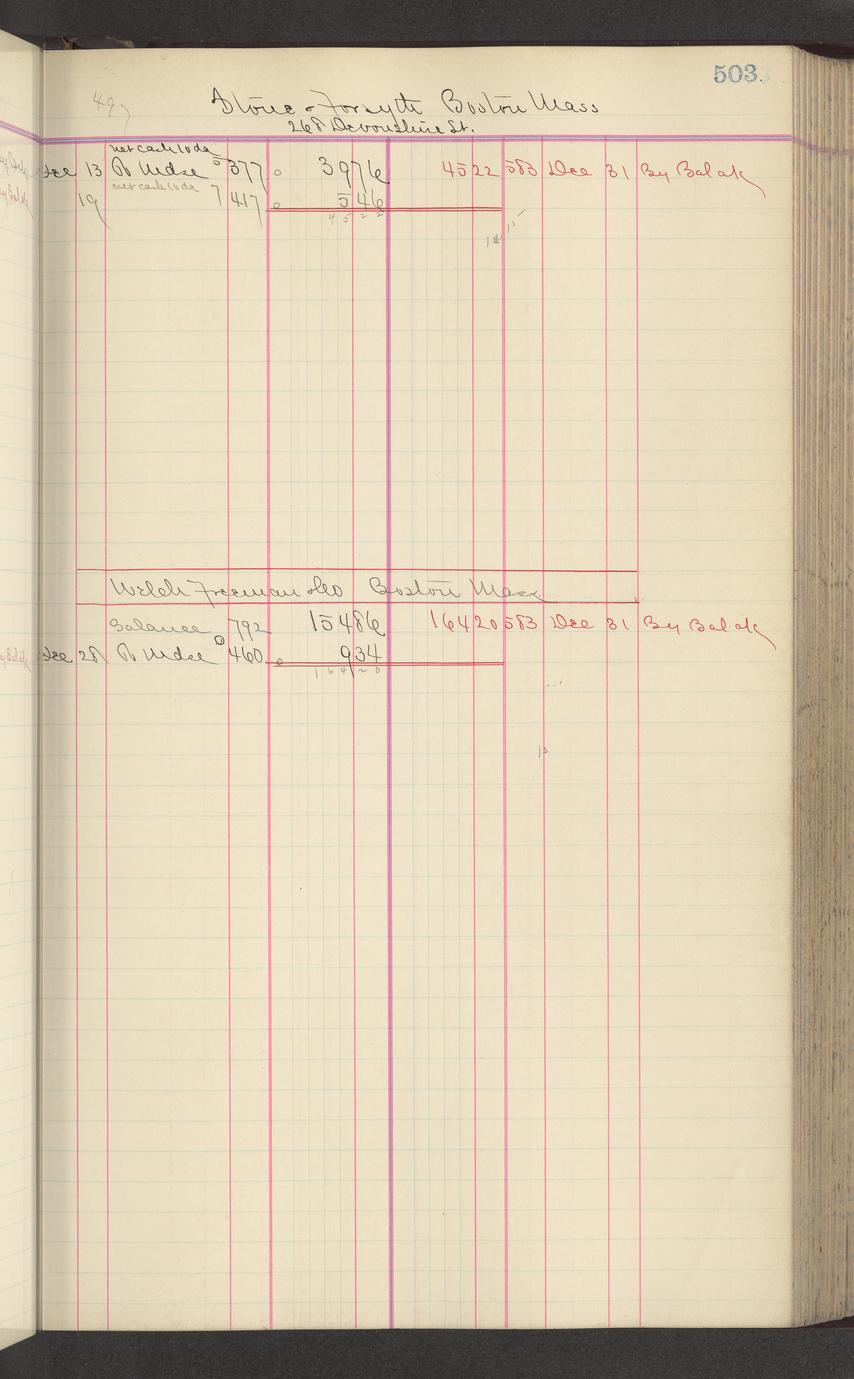 503.
497
Stone & Forsyth Boston Mass
268 Devonshire St.
net cash 10 da
Dec 13 To Mdse 5 377 39 76 45 22 583 Dec 31 By Bal ok
net cash 10 da
19 7 417 5 46
45 22
Welch Freeman & Co Boston Mass
Balance 792 154 86 164 20 583 Dec 31 By Bal ok
Dec 28 To Mdse 460 9 34
164 20